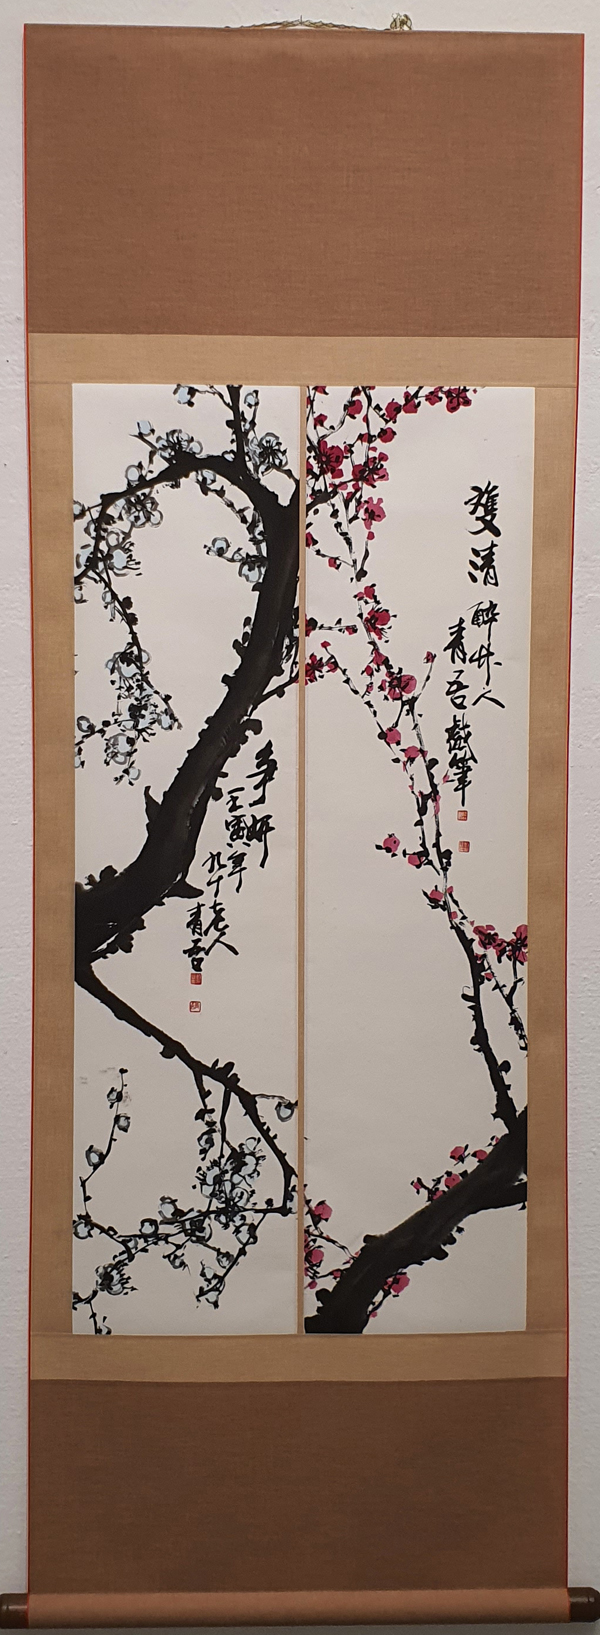 雙清
醉竹人
青吾戲筆
爭妍
壬寅年
九十老人
青吾